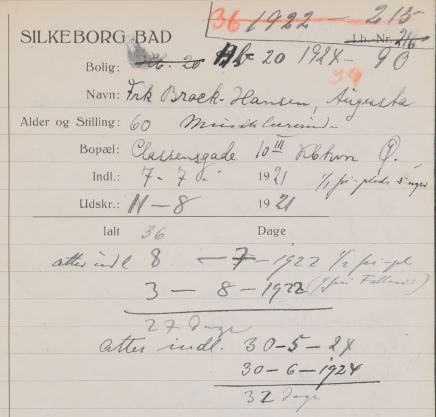 36 1922 — 215
SILKEBORG BAD
Lb.-Nr. 216
Bolig: Hb. 20 Hb 20 1924 — 90
39
Navn: Frk Brock-Hansen, Augusta
Alder og Stilling: 60 Musiklærerinde
Bopæl: Classensgade 10 III Kbhvn Ø.
Indl.: 7 - 7 - 1921 1/1 fri-plads 5 uger
Udskr.: 11 — 8 1921
Ialt 36 Dage
atter indl 8 — 7 — 1922 1/2 fri-pl
3 — 8 — 1922
27 dage
atter indl. 30 - 5 - 24
30 - 6 - 1924
32 dage